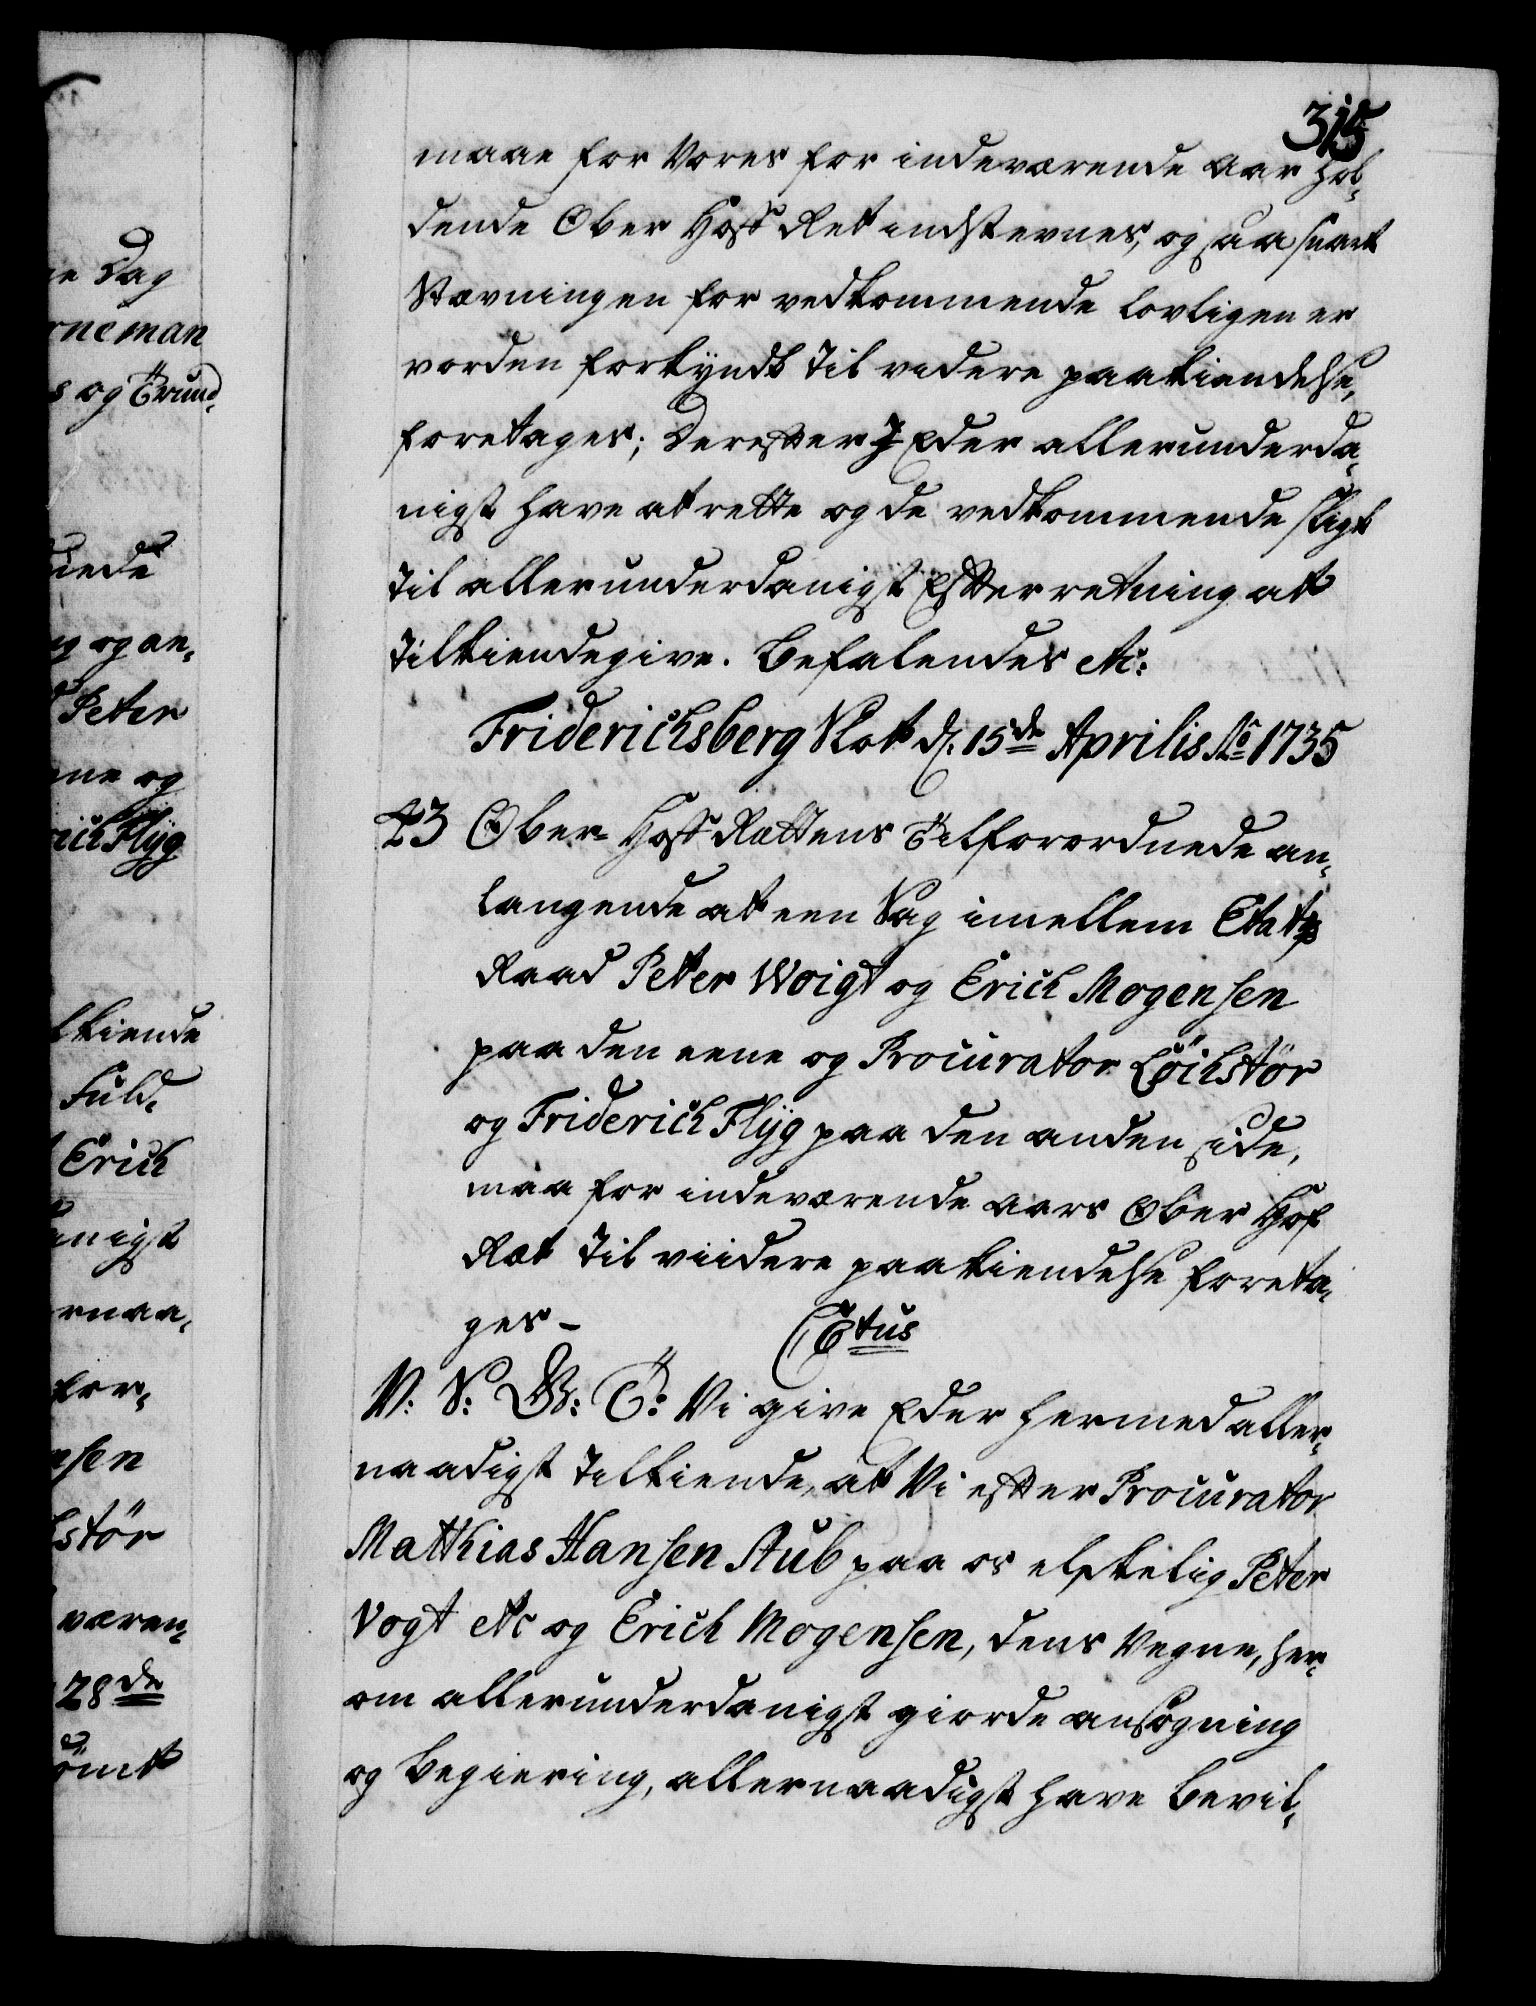 315
maae for Vores for indeværende Aar hol-
dende Ober Hoff Ret indstevnes, og saa snart
Stævningen for vedkommende lovligen er
vorden forkyndt til videre paakiendelse,
foretages; Derefter I Eder allerunderda-
nigst have at rette og de vedkommende sligt
til allerunderdanigst Efterretning at
tilkiendegive. Befalendes etc:
Friderichsberg Slot d. 15de Aprilis Ao 1735
43 Ober-Hoff Rettens Tilforordnede an-
langende at een Sag imellem Etats
Raad Peter Woigt og Erich Mogensen
paa den eene og Procurator Löchstör
og Friderich Flÿg paa den anden side,
maa for indeværende Aars Ober Hof
Ret til viidere paakiendelse foreta-
ges-
C6tus
V: S: G: T: Vi give Eder hermed aller-
naadigst tilkiende, at Vi efter Procurator
Mathias Hansen Aub paa os elskelig Peter
Vogt etc og Erich Mogensen, dens Vegne, her-
om allerunderdanigst giorde ansøgning
og Begiering, allernaadigst have bevil-
e Dag
rneman
s og Trund-
uede
og an-
Peter
ene og
rich Flÿg
lkiende
Fuld-
Erich
anigst
rnaa-
for-
nsen
stör
væren-
28de
ömt